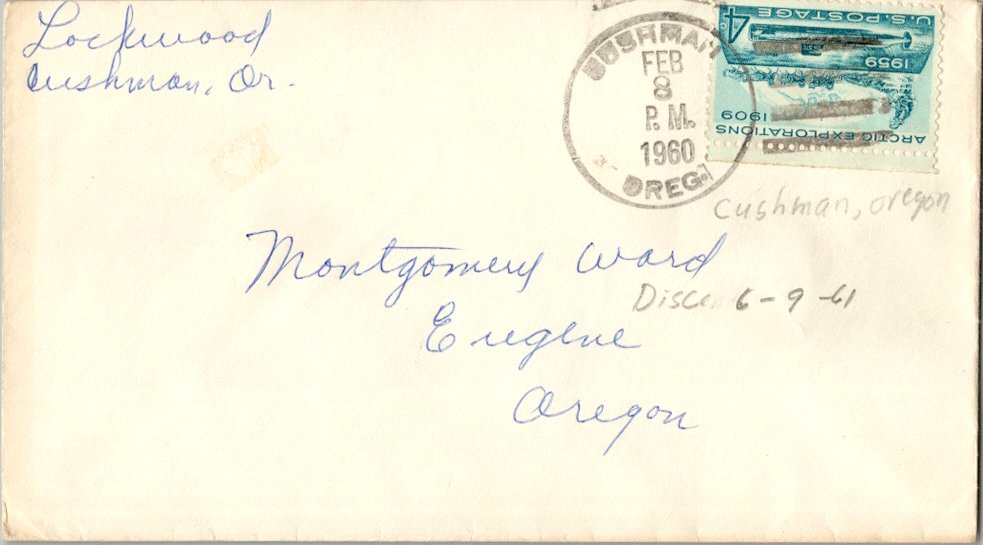 Lockwood
Cushman, Or.
CUSHMAN
FEB
8
P. M.
1960
OREG.
U.S. POSTAGE
4¢
1959
1909
ARCTIC EXPLORATIONS
Cushman, oregon
Montgomery Ward
Disc. 6-9-61
Eugene
Oregon